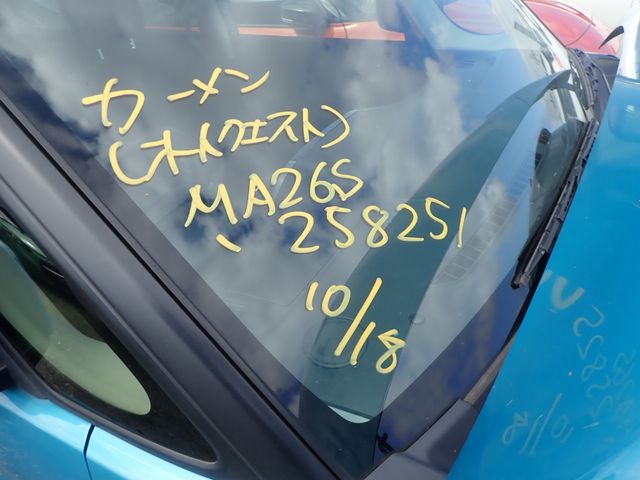 カーメン
レオ(クエスト)
MA26S
-258251
10/18